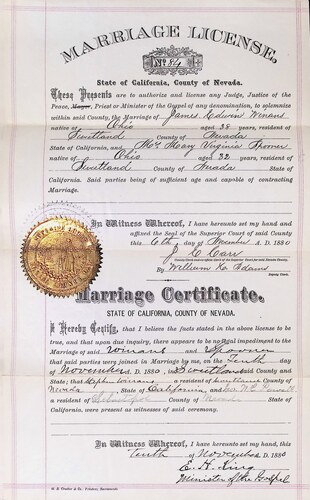 MARRIAGE LICENSE,
No. 84
State of California, County of Nevada.
These Presents are to authorize and license any Judge, Justice of the
Peace, Mayor, Priest or Minister of the Gospel of any denomination, to solemnize
within said County the Marriage of James Edwin Winans
native of Ohio aged 38 years, resident of
Sweetland County of Nevada
State of California, and Mrs Mary Virginia
native of Ohio aged 32 years, resident of
Sweetland County of Nevada State of
California. Said parties being of sufficient age and capable of contracting
Marriage.
In Witness Whereof, I have hereunto set my hand and
affixed the Seal of the Superior Court of said County
this 6th day of November A. D. 1880
J C Carr
By William K. Adams
Deputy Clerk
Marriage Certificate.
STATE OF CALIFORNIA, COUNTY OF NEVADA.
I Hereby Certify, that I believe the facts stated in the above license to be
true, and that upon due inquiry, there appears to be no legal impediment to the
Marriage of said Winans and
that said parties were joined in Marriage by me, on the Tenth day
of November A. D. 1880, in Sweetland said County and
State; that a resident of County
Nevada, State of California, and
a resident of County of Nevada, State of
California, were present as witnesses of said ceremony.
In Witness Whereof, I have hereunto set my hand, this
tenth of November A. D. 1880
E. H. King
Minister of the Gospel